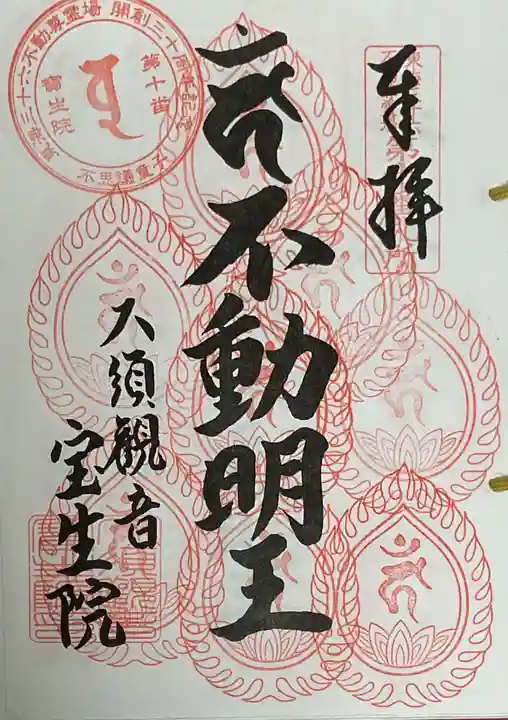 奉拝
不動明王
大須観音
宝生院
東海三十六不動尊霊場 開創三十周年記念
第十番
寳生院
不思議童子